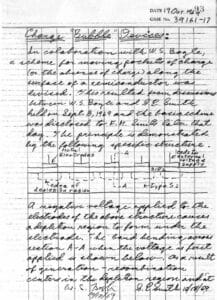 DATE 19 Oct. 1969
CASE No. 39161-17
Charge "Bubble" Devices:
In collaboration with W. S. Boyle,
a scheme for moving pockets of charge
(or the absence of charge) along the
surface of a semiconductor was
devised. This resulted from discussions
between W. S. Boyle and G. E. Smith
held on Sept 8, 1969 and the basic scheme
was disclosed to later that
day. The principle is demonstrated
by the following specific structure:
electrodes
leads to
external
voltage
supply
SiO2
n-type Si
edge of
depletion region
A negative voltage applied to the
electrodes of the above structure causes
a depletion region to form under the
electrode. The band diagram across
section A-A when the voltage is first
applied is shown below. As a result
of generation - recombination
centers in the depletion region and at
W. S. Boyle
G. E. Smith 10/19/69